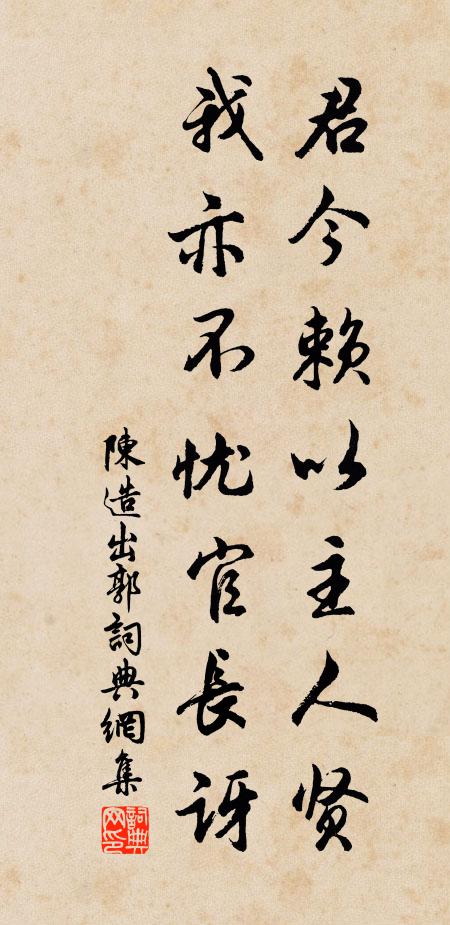 君今赖以主人贤
我亦不忧官长讶
陳造出郭詞典網集
詞典網印